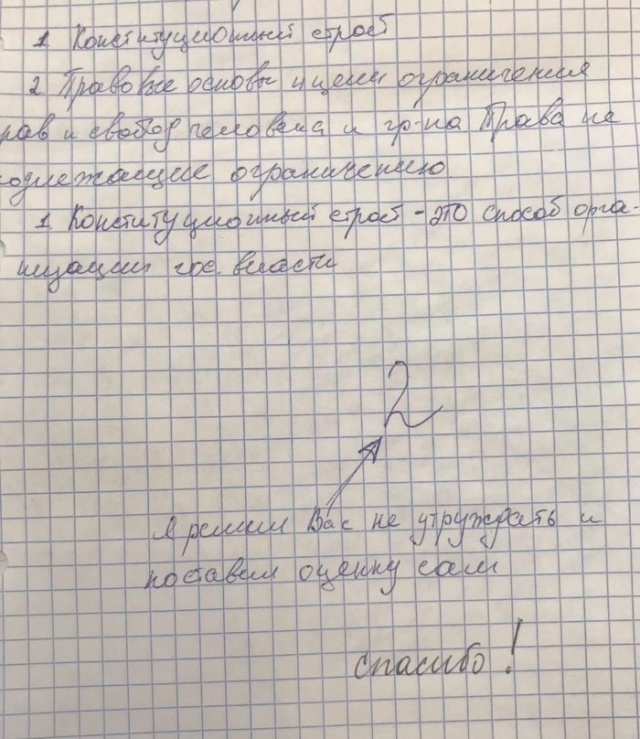 1 Конституционный строй
2 Правовые основы и цели ограничения
рав и свобод человека и гр-на Права не
одлежащие ограничению
1 Конституционный строй - это способ орга-
низации гос. власти
2
Я решил Вас не утруждать и
поставил оценку сам
спасибо!